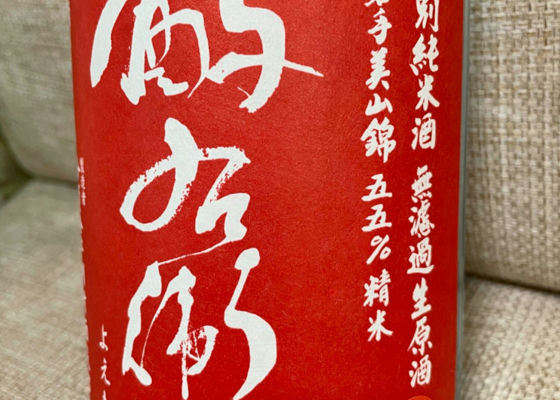 別純米酒 無濾過生原酒
手美山錦 五五%精米
酉与右衛
よえ